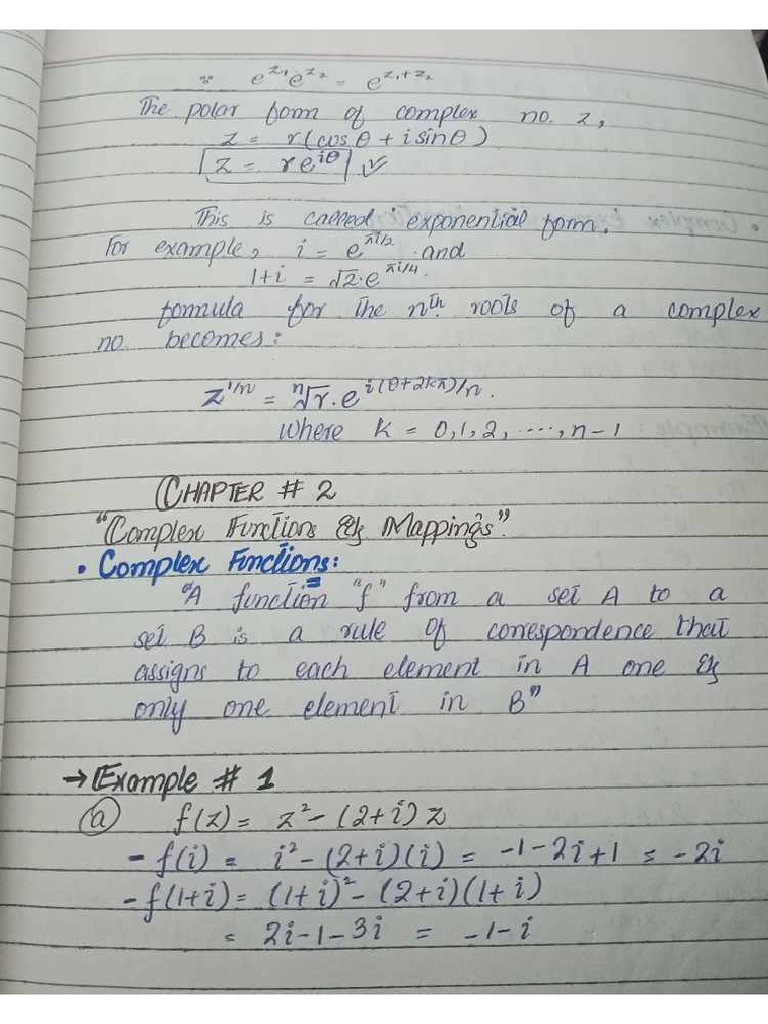 ∵ e^{z₁} e^{z₂} = e^{z₁+z₂}
The polar form of complex no. z,
z = r(cosθ + i sinθ)
z = re^{iθ}
This is called exponential form.
For example, i = e^{πi/2} and
1+i = √2·e^{πi/4}.
formula for the nth roots of a complex
no. becomes:
z^{1/n} = ⁿ√r · e^{i(θ+2kπ)/n}.
where k = 0,1,2, ..., n-1
CHAPTER # 2
"Complex Functions & Mappings".
• Complex Functions:
"A function "f" from a set A to a
set B is a rule of correspondence that
assigns to each element in A one &
only one element in B"
→ Example # 1
(a) f(z) = z² - (2+i)z
- f(i) = i² - (2+i)(i) = -1-2i+1 = -2i
- f(1+i) = (1+i)² - (2+i)(1+i)
= 2i-1-3i = -1-i